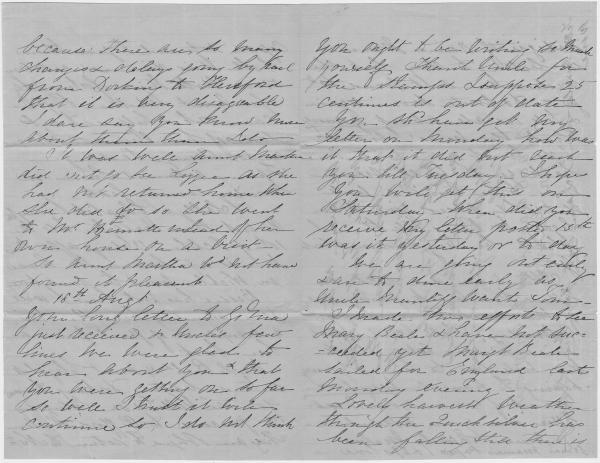 because there are so many
changes & delays going by rail
from Dorking to Hertford
that it is very disagreeable
I dare say you know more
about them than I do
It was well Aunt Martha
did not go to see as she
had not returned home when
she did do so she went
to Mr instead of her
own house on a visit
So Aunt Martha wd not have
found it pleasant
15th Augt
Your long letter to
just received & Uncle's few
lines we were glad to
hear about you & that
you were getting on so far
so well I trust it will
continue so I do not think
you ought to be writing so much
yourself Thank Uncle for
the Stamps I suppose 25
centimes is out of date
You shd have got my
letter on Monday how was
it that it did not reach
you till Tuesday. I hope
you will get this on
Saturday. When did you
receive my letter posted 13th
was it yesterday or to day
We are going out early
& are to dine early as
Uncle wants
I made two efforts to see
Mary Beale & have not suc-
=ceeded yet Beale
sailed for England last
Monday evening
Lovely harvest weather
though the Quicksilver has
been falling still there is